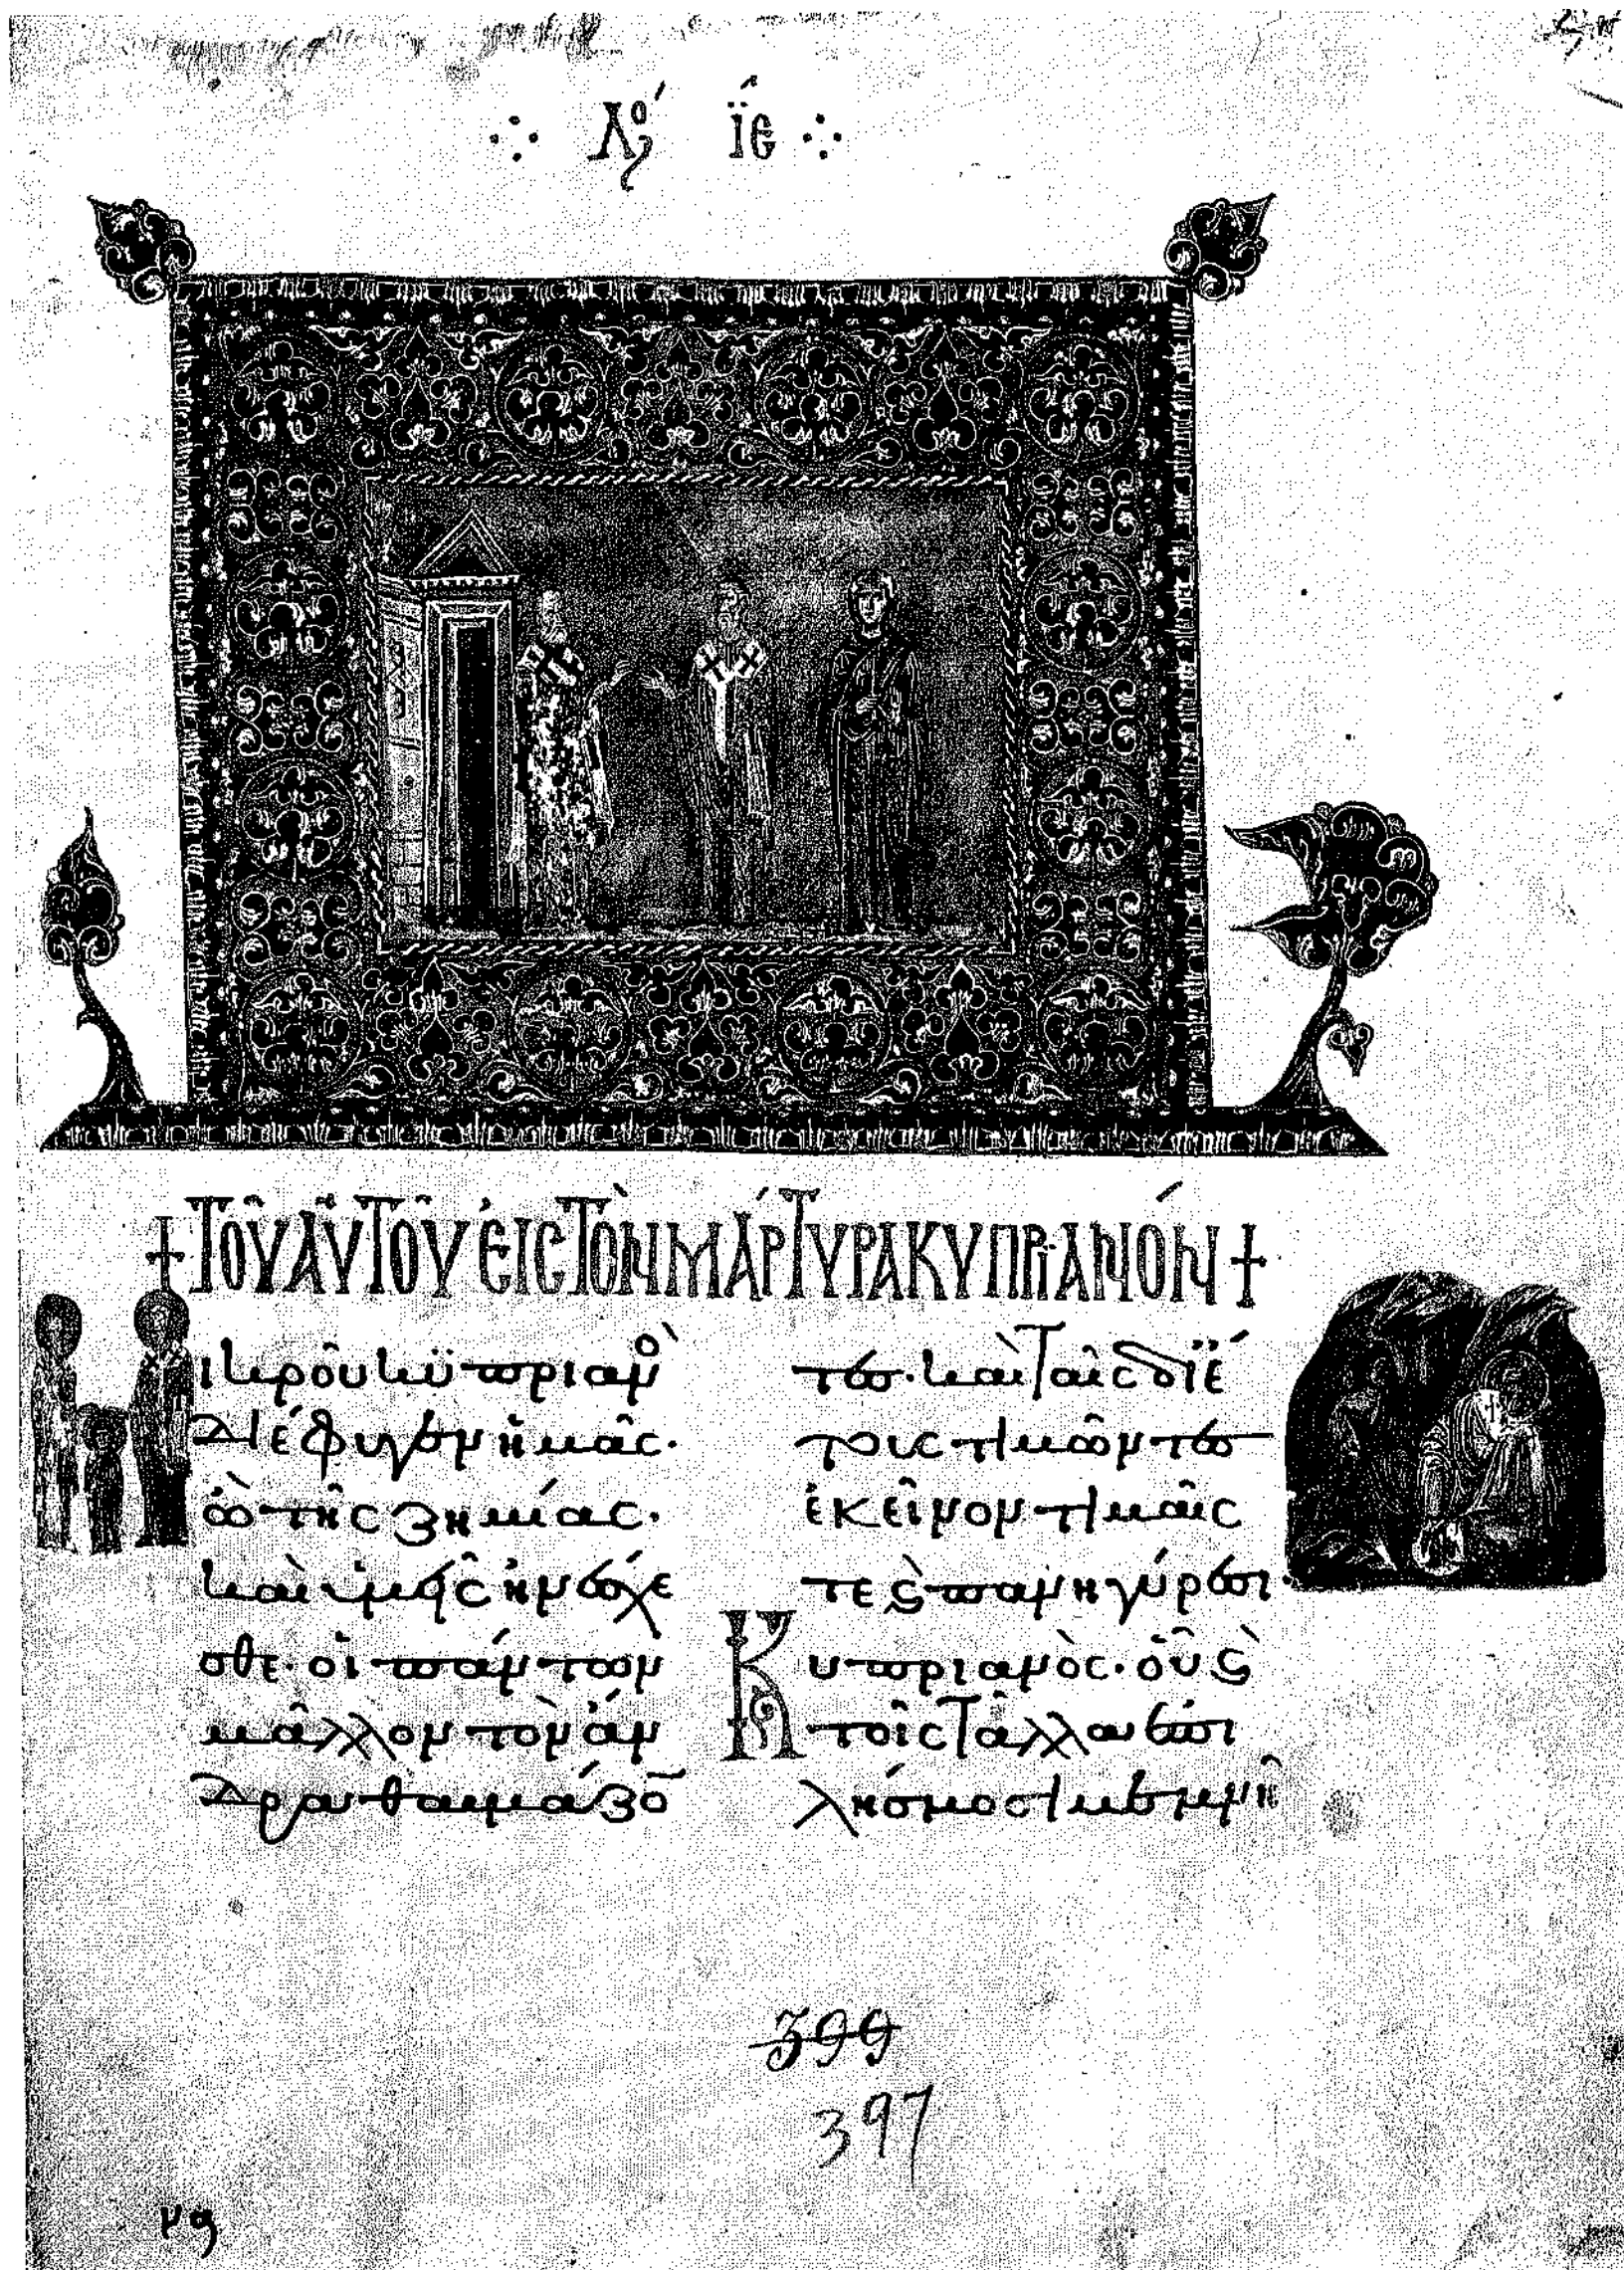 ∴ Λό ιέ ∴
+ ΤΟΥ ΑΥΤΟΥ ΕΙΣ ΤΟΝ ΜΑΡΤΥΡΑ ΚΥΠΡΙΑΝΟΝ +
ικροῦ κϋπριανὸ
διέφυγεν ἡμᾶς·
ὢ τῆς ζημίας·
καὶ ὑμεῖς ἠνέσχε
σθε· οἱ πάντων
μᾶλλον τὸν ἄν
δρα θαυμάζο̄
τες· καὶ ταῖς δι' ἔ
τους τιμῶντες
ἐκεῖνον τιμαῖς
τε ϗ πανηγύρεσι·
Κυπριανὸς· οὗ ϗ
τοῖς τἄλλα ἐπι
λήσμοσι μεμνῆ
399
397
μα